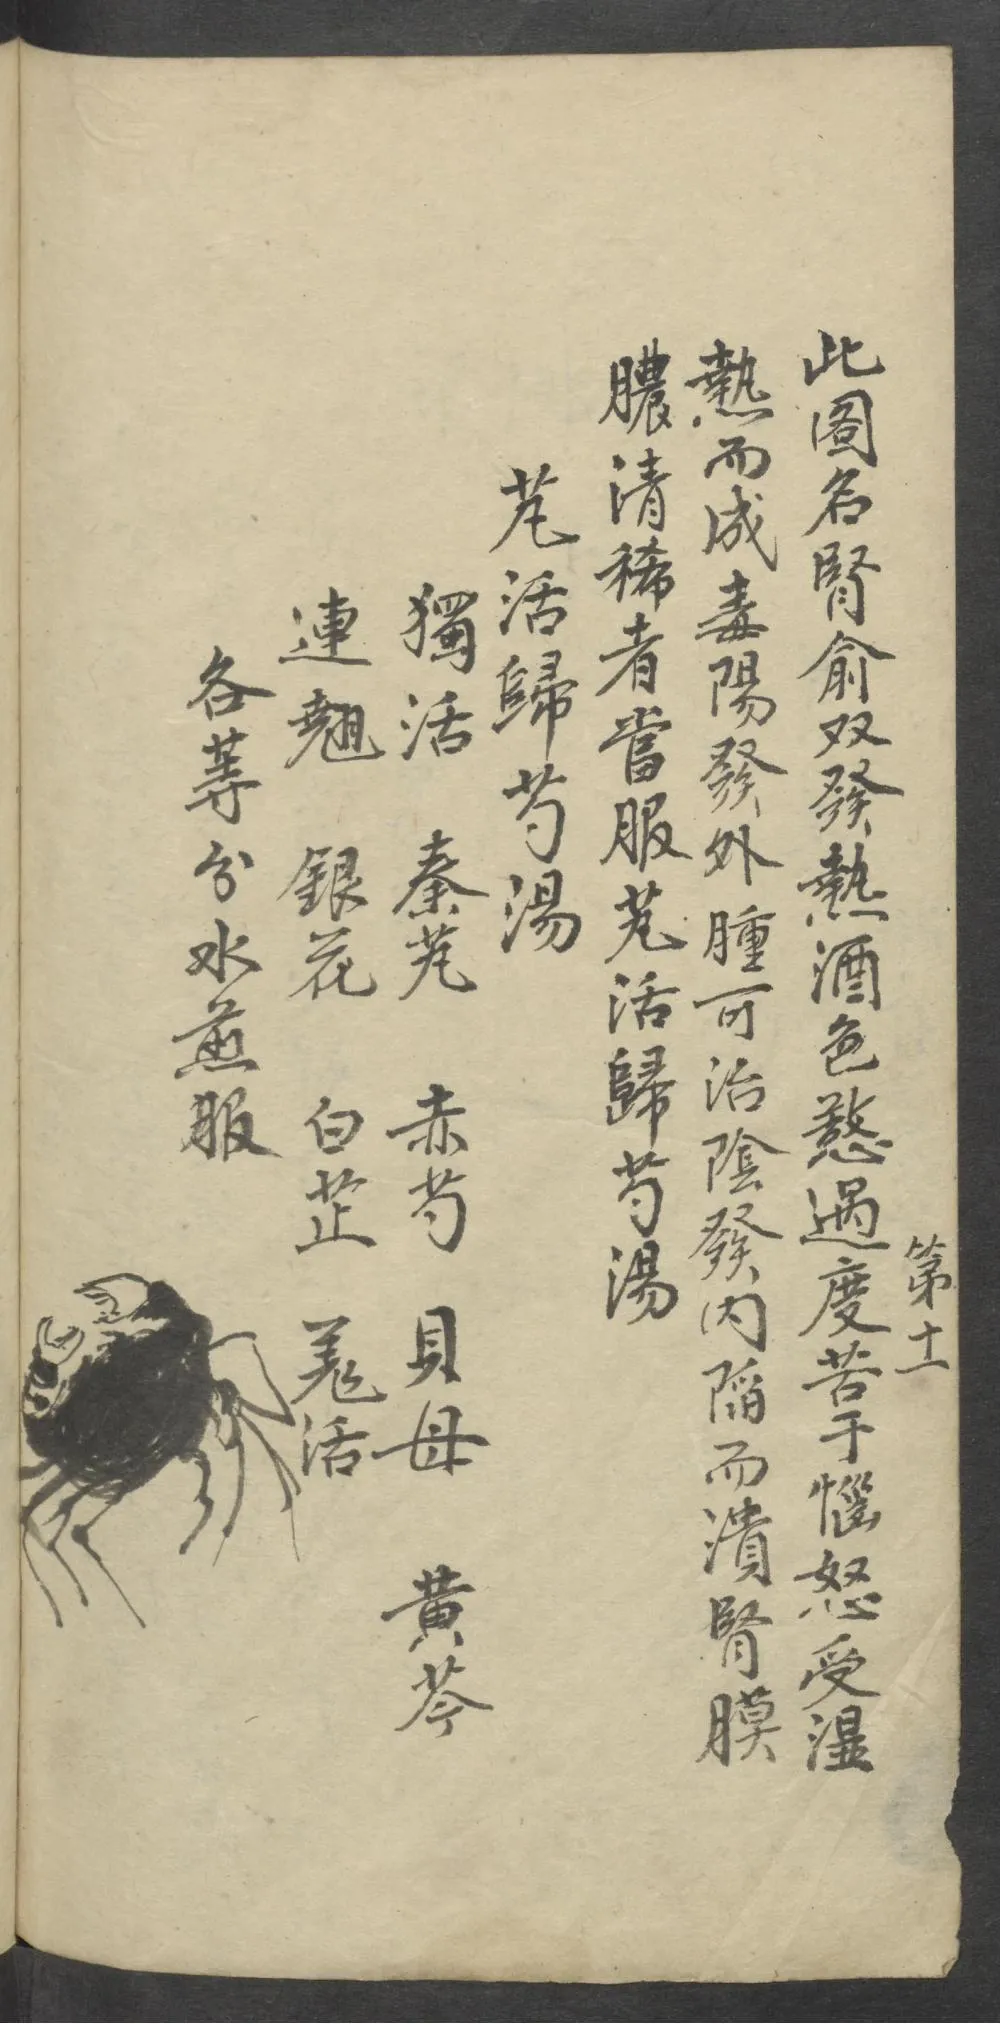 第十一
此圖名腎俞双發熱酒色慾過度苦于惱怒受湿
熱而成毒陽發外腫可治陰發内陷而潰腎膜
膿清稀者當服艽活歸芍湯
艽活歸芍湯
獨活 秦艽 赤芍 貝母 黄芩
連翹 銀花 白芷 羗活
各等分水煎服